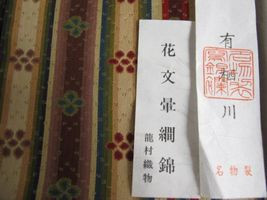 有栖川
名物裂
花文暈繝錦
龍村織物